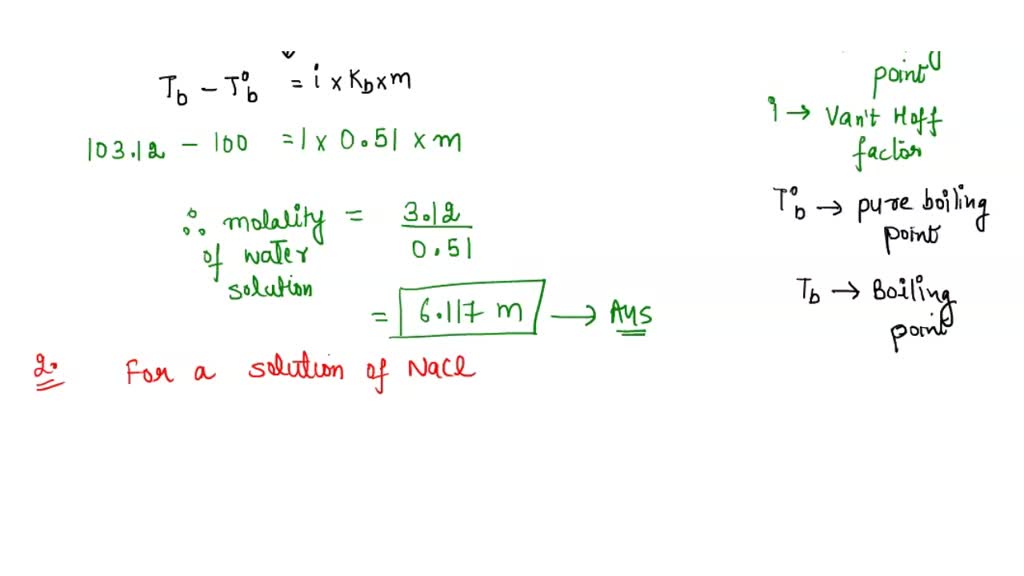 T_b – T°_b = i × K_b × m
103.12 – 100 = 1 × 0.51 × m
∴ molality of water solution = 3.12 / 0.51
= 6.117 m → Ans
2. For a solution of NaCl
point
i → Van't Hoff
factor
T°_b → pure boiling
point
T_b → Boiling
point